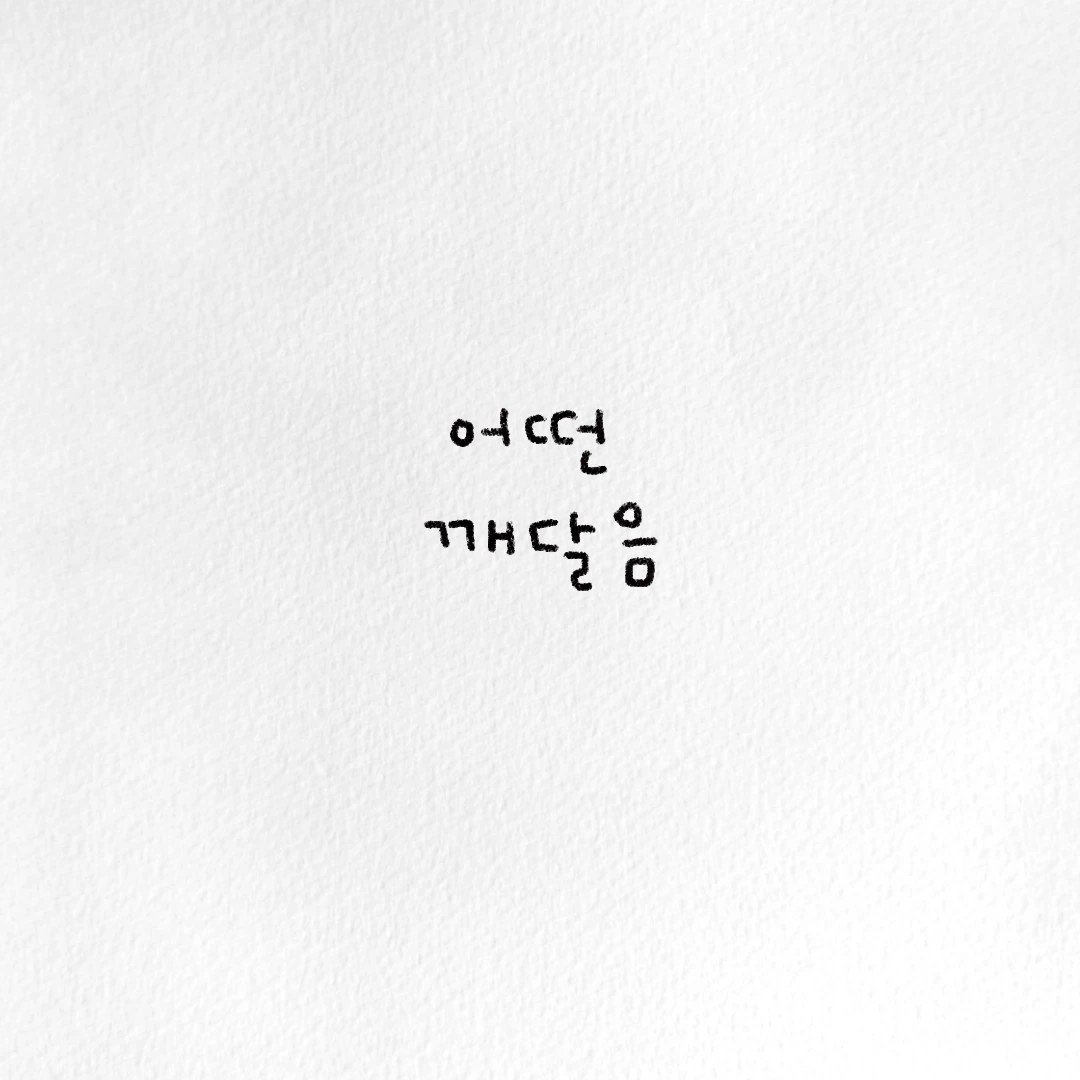 어떤
깨달음